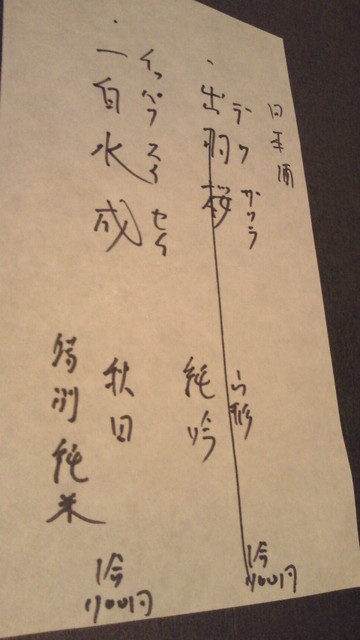 日本酒
デワザクラ
・出羽桜
山形
純吟
1合
700円
イッパクスイセイ
・一白水成
秋田
特別純米
1合
700円